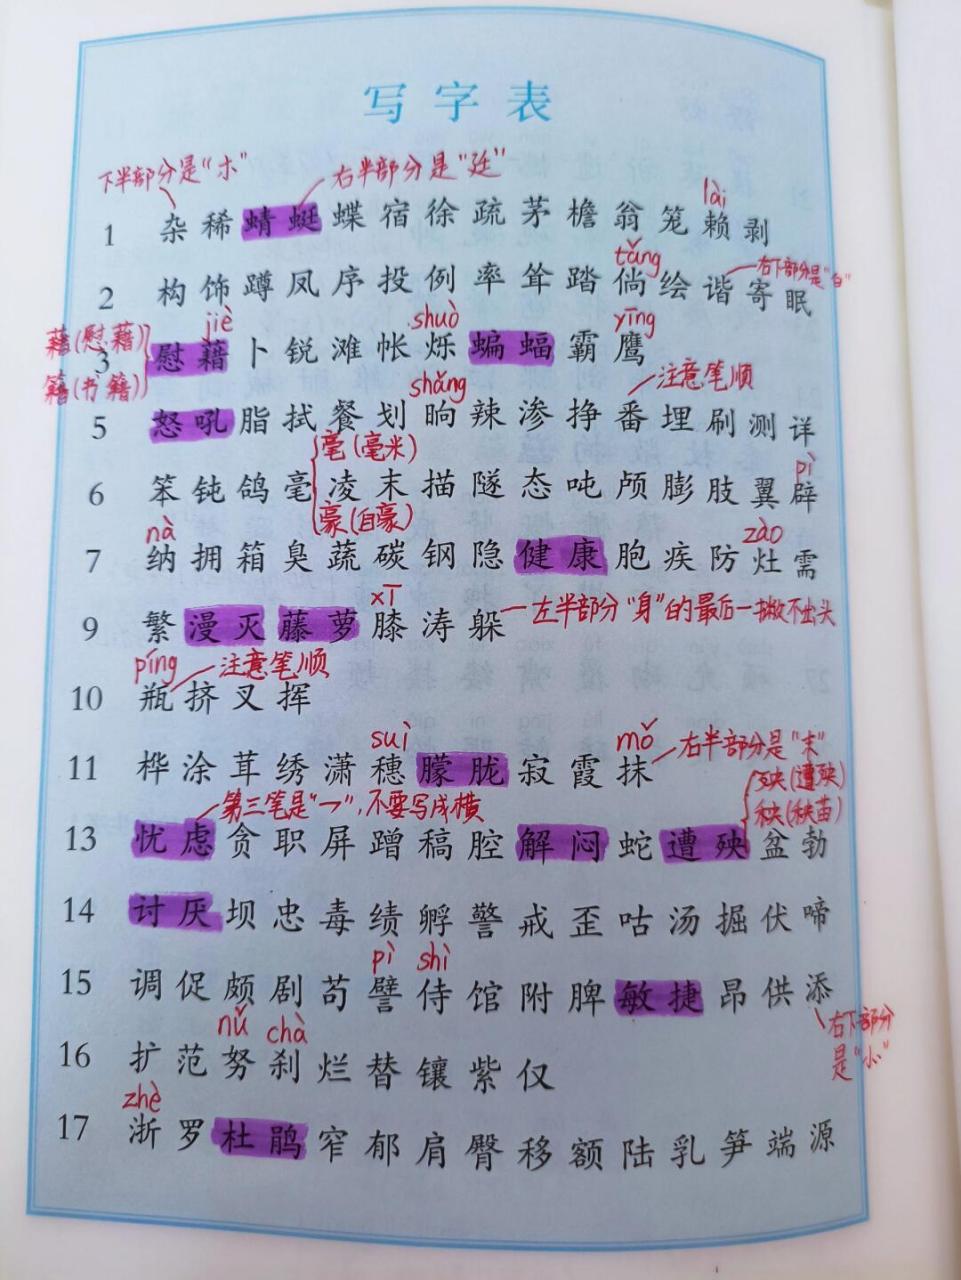 写字表
下半部分是“朩” 右半部分是“廷”
lài
1 杂 稀 蜻 蜓 蝶 宿 徐 疏 茅 檐 翁 笼 赖 剥
tǎng 右下部分是“白”
2 构 饰 蹲 凤 序 投 例 率 耸 踏 倘 绘 谐 寄 眠
藉(慰藉) jiè shuò yīng
3 慰 藉 卜 锐 滩 帐 烁 蝙 蝠 霸 鹰
籍(书籍) shǎng 注意笔顺
5 怒 吼 脂 拭 餐 划 晌 辣 渗 挣 番 埋 刷 测 详
毫(毫米) pì
6 笨 钝 鸽 毫 凌 末 描 隧 态 吨 颅 膨 肢 翼 辟
豪(自豪)
nà zào
7 纳 拥 箱 臭 蔬 碳 钢 隐 健 康 胞 疾 防 灶 需
xī
9 繁 漫 灭 藤 萝 膝 涛 躲 左半部分“身”的最后一撇不出头
píng 注意笔顺
10 瓶 挤 叉 挥
suì mǒ 右半部分是“末”
11 桦 涂 茸 绣 潇 穗 朦 胧 寂 霞 抹
殃(遭殃)
第三笔是“一”,不要写成横 秧(秧苗)
13 忧 虑 贪 职 屏 蹭 稿 腔 解 闷 蛇 遭 殃 盆 勃
14 讨 厌 坝 忠 毒 绩 孵 警 戒 歪 咕 汤 掘 伏 啼
pì shì
15 调 促 颇 剧 苟 譬 侍 馆 附 脾 敏 捷 昂 供 添
nǔ chà 右下部分
是“⺗”
16 扩 范 努 刹 烂 替 镶 紫 仅
zhè
17 浙 罗 杜 鹃 窄 郁 肩 臀 移 额 陆 乳 笋 端 源